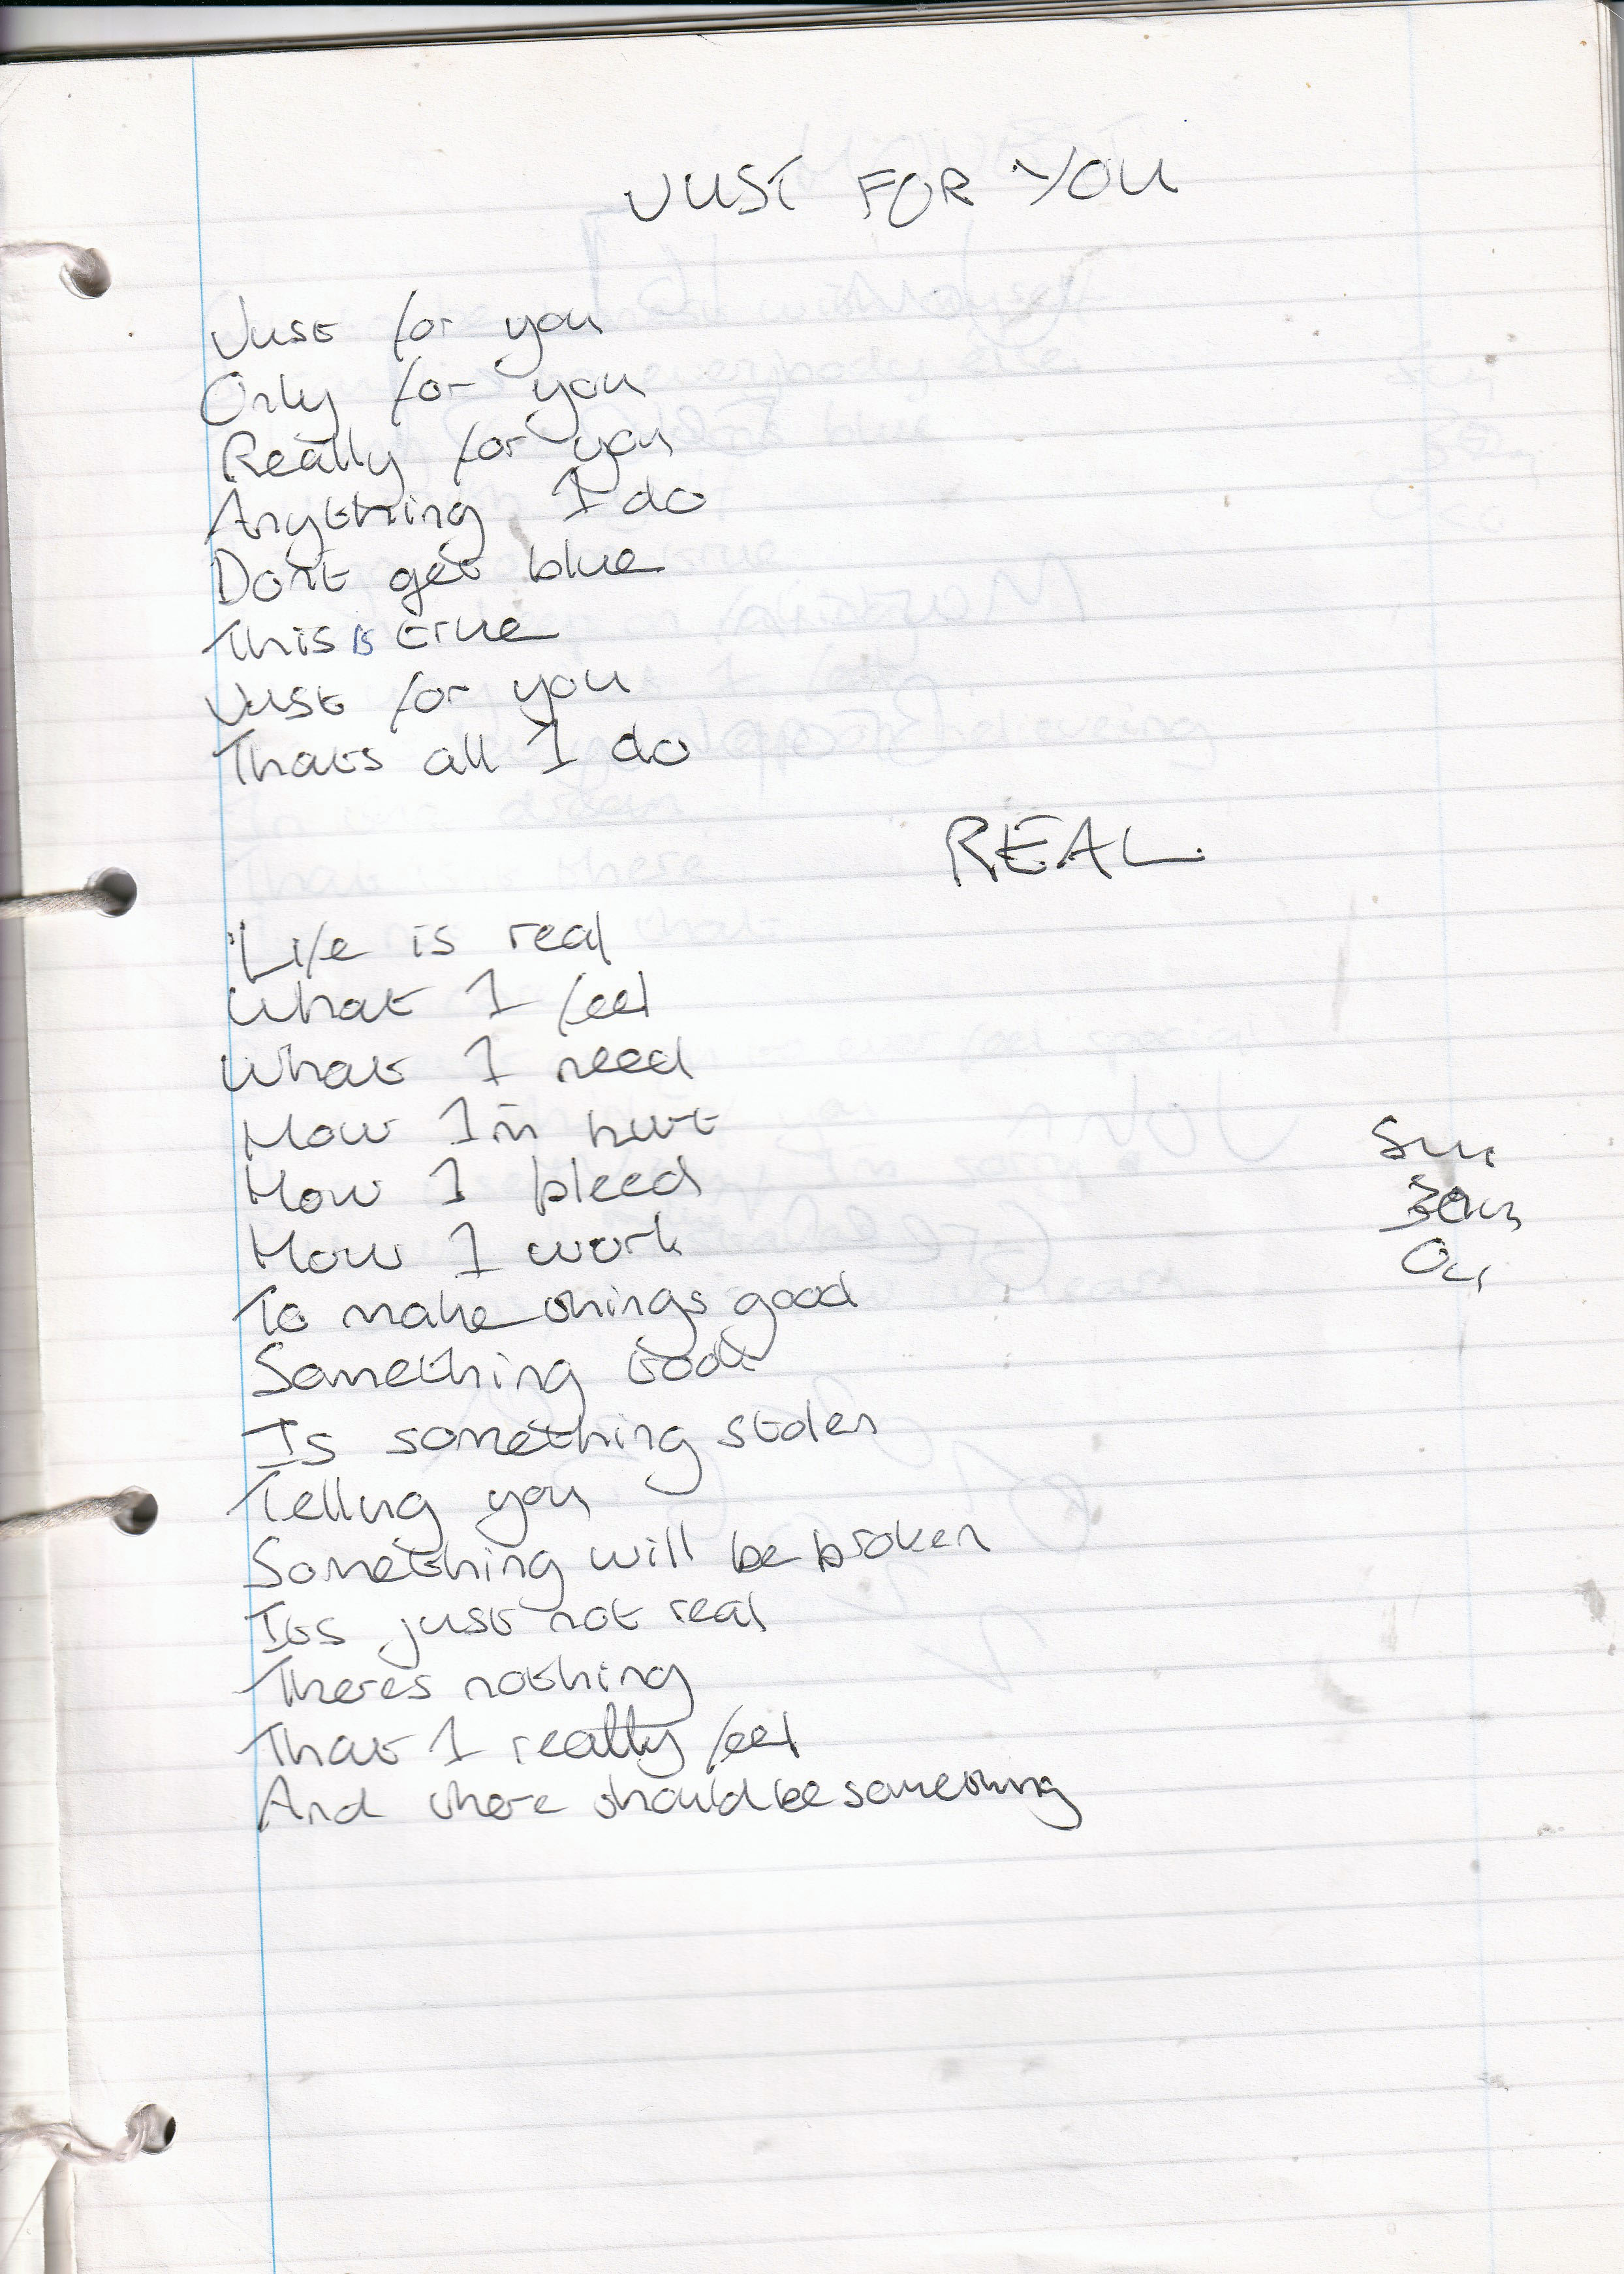 JUST FOR YOU
Just for you
Only for you
Really for you
Anything I do
Dont get blue
This is true
Just for you
Thats all I do
REAL
Life is real
What I feel
What I need
How Im hurt
How I bleed
How I work
To make things good
Something took
Is something stolen
Telling you
Something will be broken
Its just not real
Theres nothing
That I really feel
And there should be something
Sun
30th
Oct